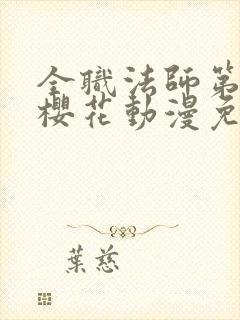 全職法師第
櫻花動漫免
葉慈